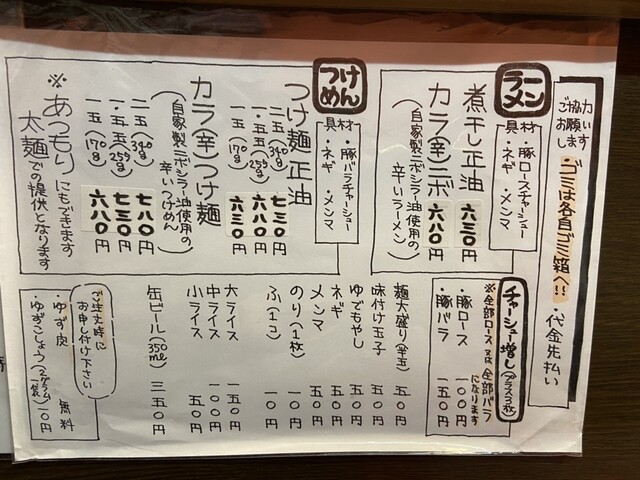 ご協力
お願いします
・ゴミは各自ゴミ箱へ!!
・代金先払い
ラーメン
具材
・豚ロースチャーシュー
・ネギ ・メンマ
煮干し正油 六三〇円
カラ(辛)ニボ 六八〇円
(自家製ニボシラー油使用の
辛いラーメン)
つけめん
具材
・豚バラチャーシュー
・ネギ ・メンマ
つけ麺正油
二玉(340g) 七三〇円
一・五玉(255g) 六八〇円
一玉(170g) 六三〇円
カラ(辛)つけ麺
(自家製ニボシラー油使用の
辛いつけめん)
二玉(340g) 七八〇円
一・五玉(255g) 七三〇円
一玉(170g) 六八〇円
※あつもりにもできます
太麺での提供となります
チャーシュー増し(プラス3枚)
※全部ロース又は全部バラ
になります
・豚ロース 一〇〇円
・豚バラ 一五〇円
麺大盛り(半玉) 五〇円
味付け玉子 五〇円
ゆでもやし 五〇円
ネギ 五〇円
メンマ 五〇円
のり(1枚) 一〇円
ふ(1コ) 一〇円
大ライス 一五〇円
中ライス 一〇〇円
小ライス 五〇円
缶ビール(350ml) 三五〇円
ご注文時に
お申し付け下さい
ゆず皮 無料
ゆずこしょう(2グラム一袋) 一〇円